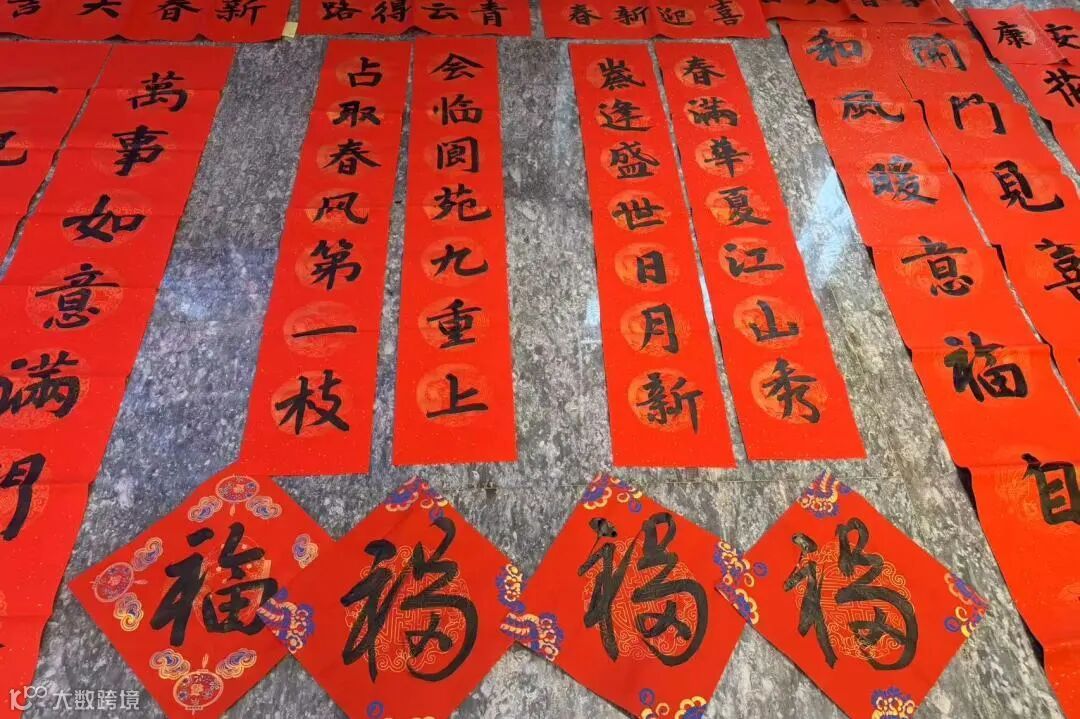 新春大
青云得路
喜迎新春
安康
開门見喜
和风暖意福自
春满華夏江山秀
歲逢盛世日月新
会临阆苑九重上
占取春风第一枝
萬事如意满门
一
福
福
福
福
大数跨境